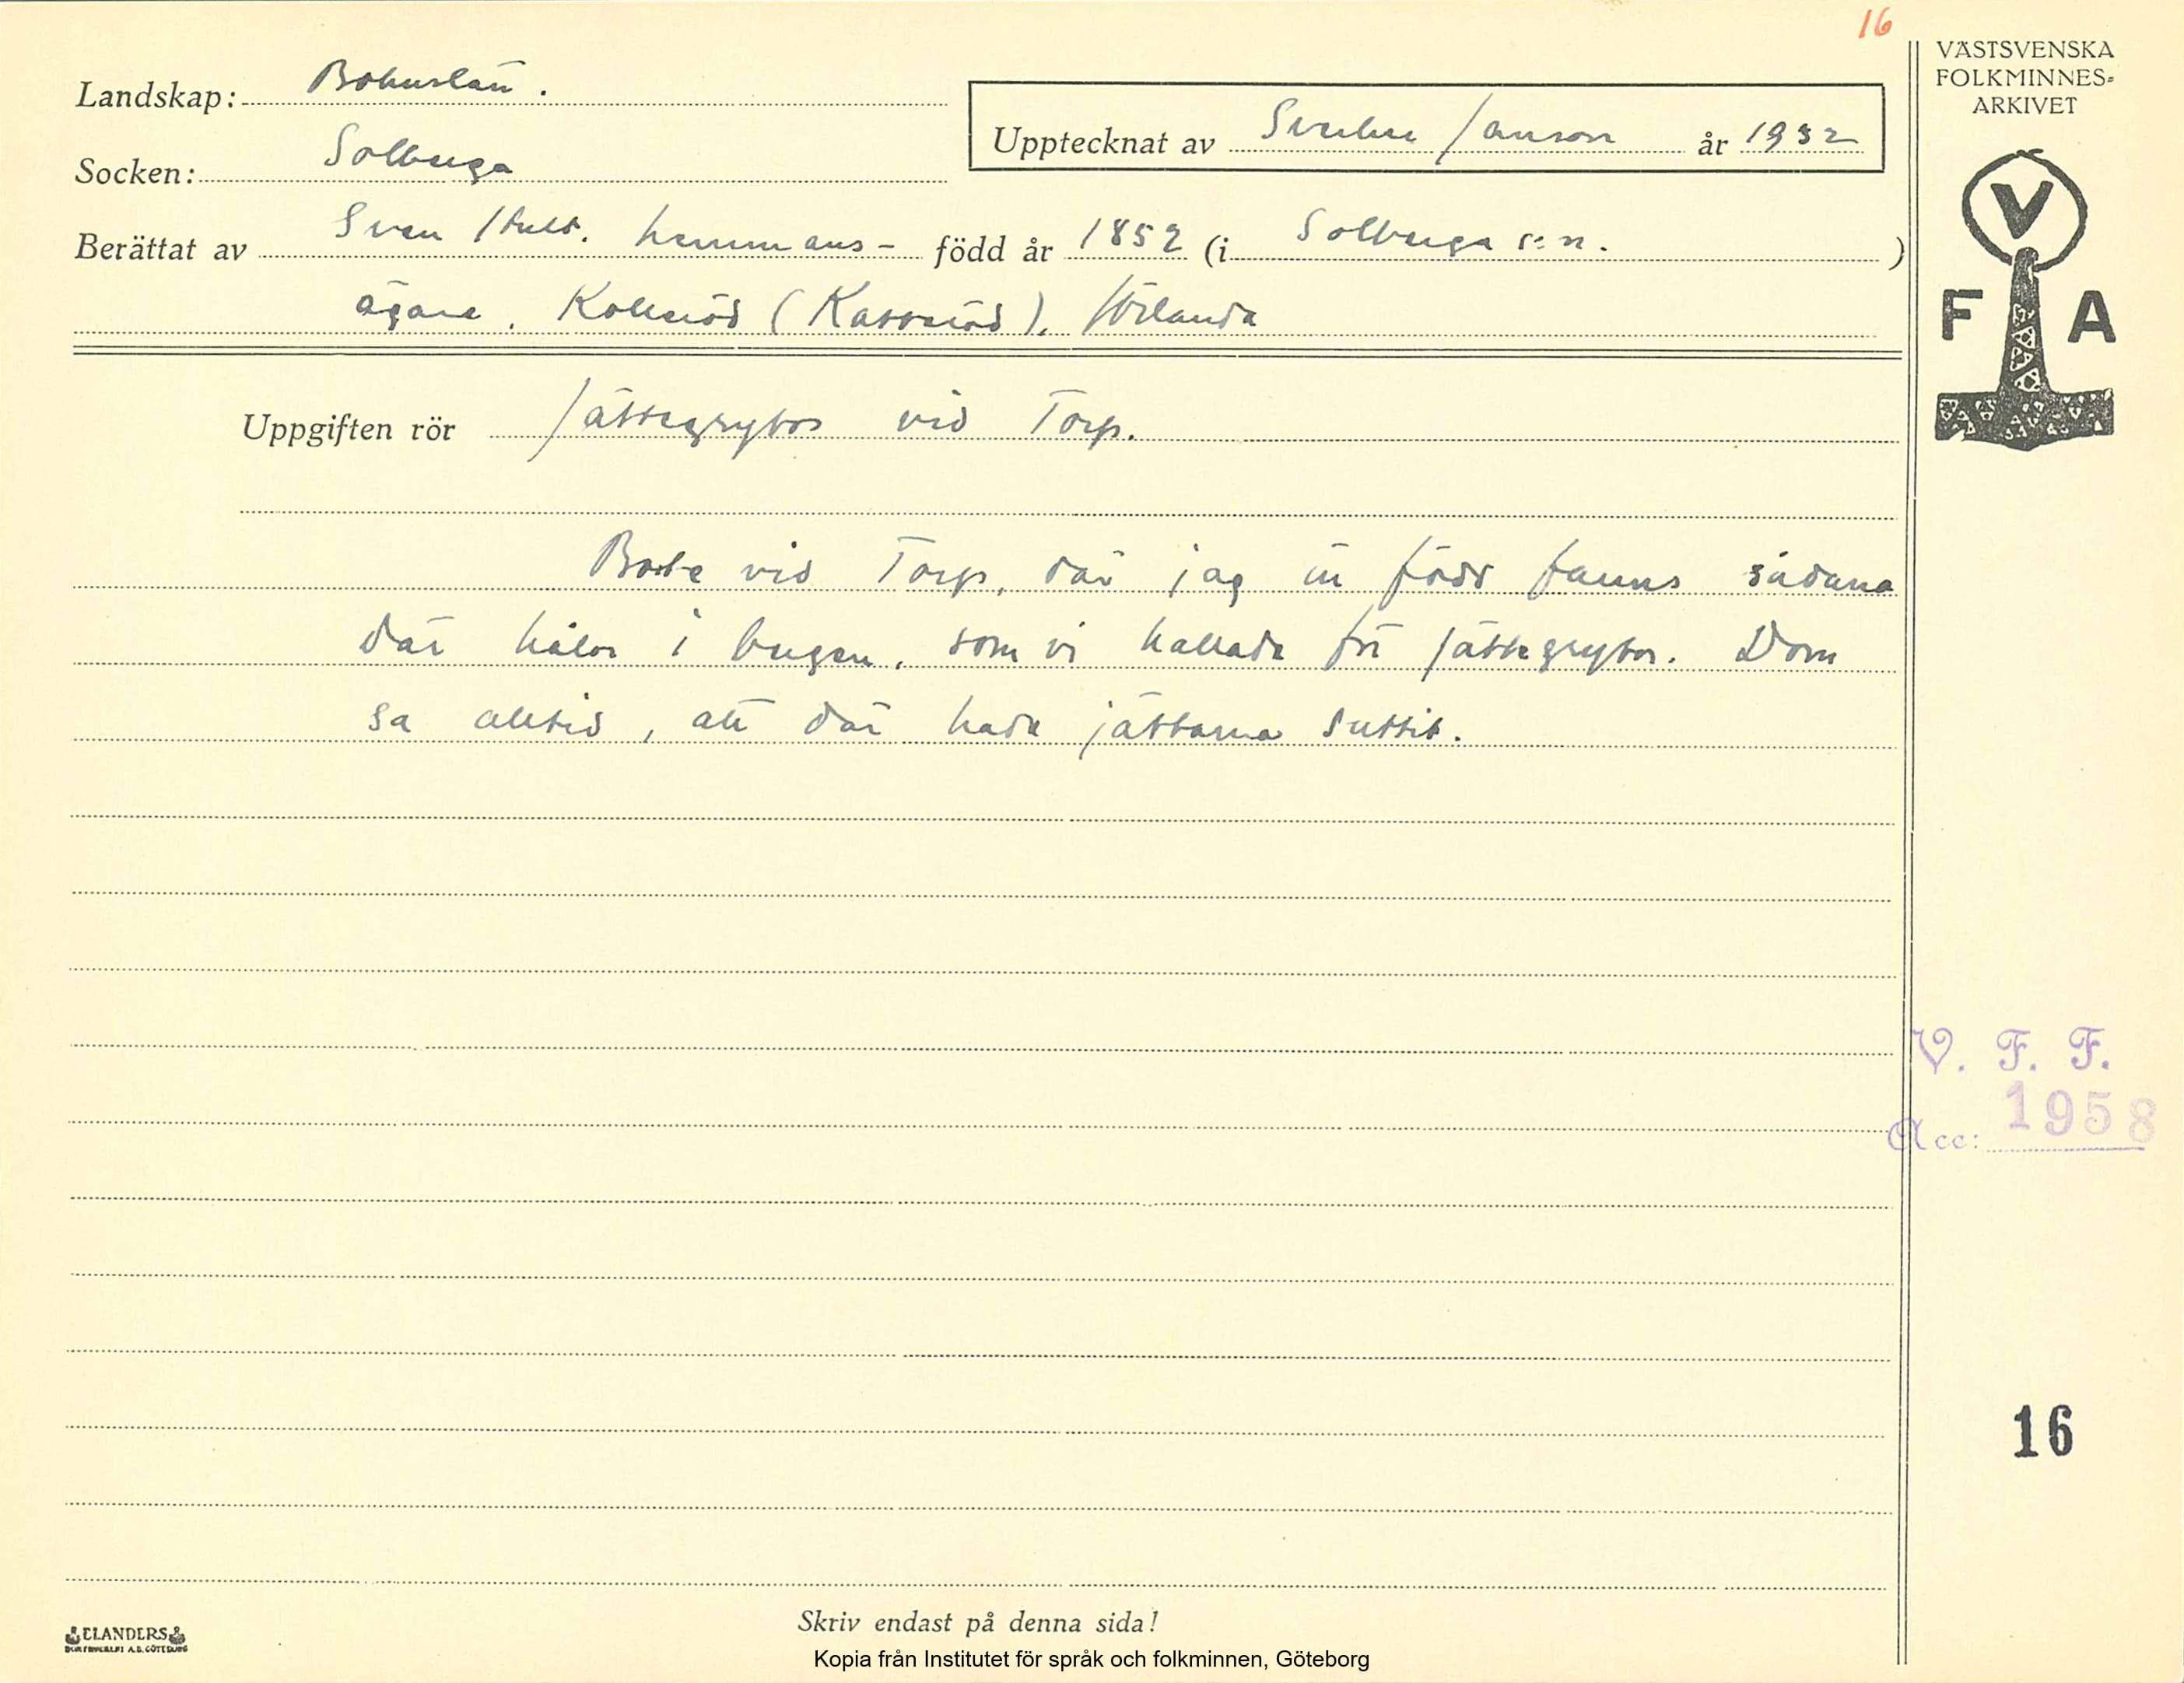 16
VÄSTSVENSKA
FOLKMINNES-
ARKIVET
Landskap: Bohuslän.
Upptecknat av Sverker Janson år 1932
Socken: Solberga
Berättat av Sven Hult. hemmans- född år 1852 (i Solberga s:n.)
ägare. Jörlanda
V
F A
Uppgiften rör Jättegrytor vid Torp.
Borte vid Torp, där jag är född fanns sådana
där hålor i bergen, som vi kallade för jättegrytor. Dom
sa alltid, att där hade jättarna suttit.
V. F. F.
Acc: 1958
16
Skriv endast på denna sida!
ELANDERS
BOKTRYCKERI A.B. GÖTEBORG
Kopia från Institutet för språk och folkminnen, Göteborg